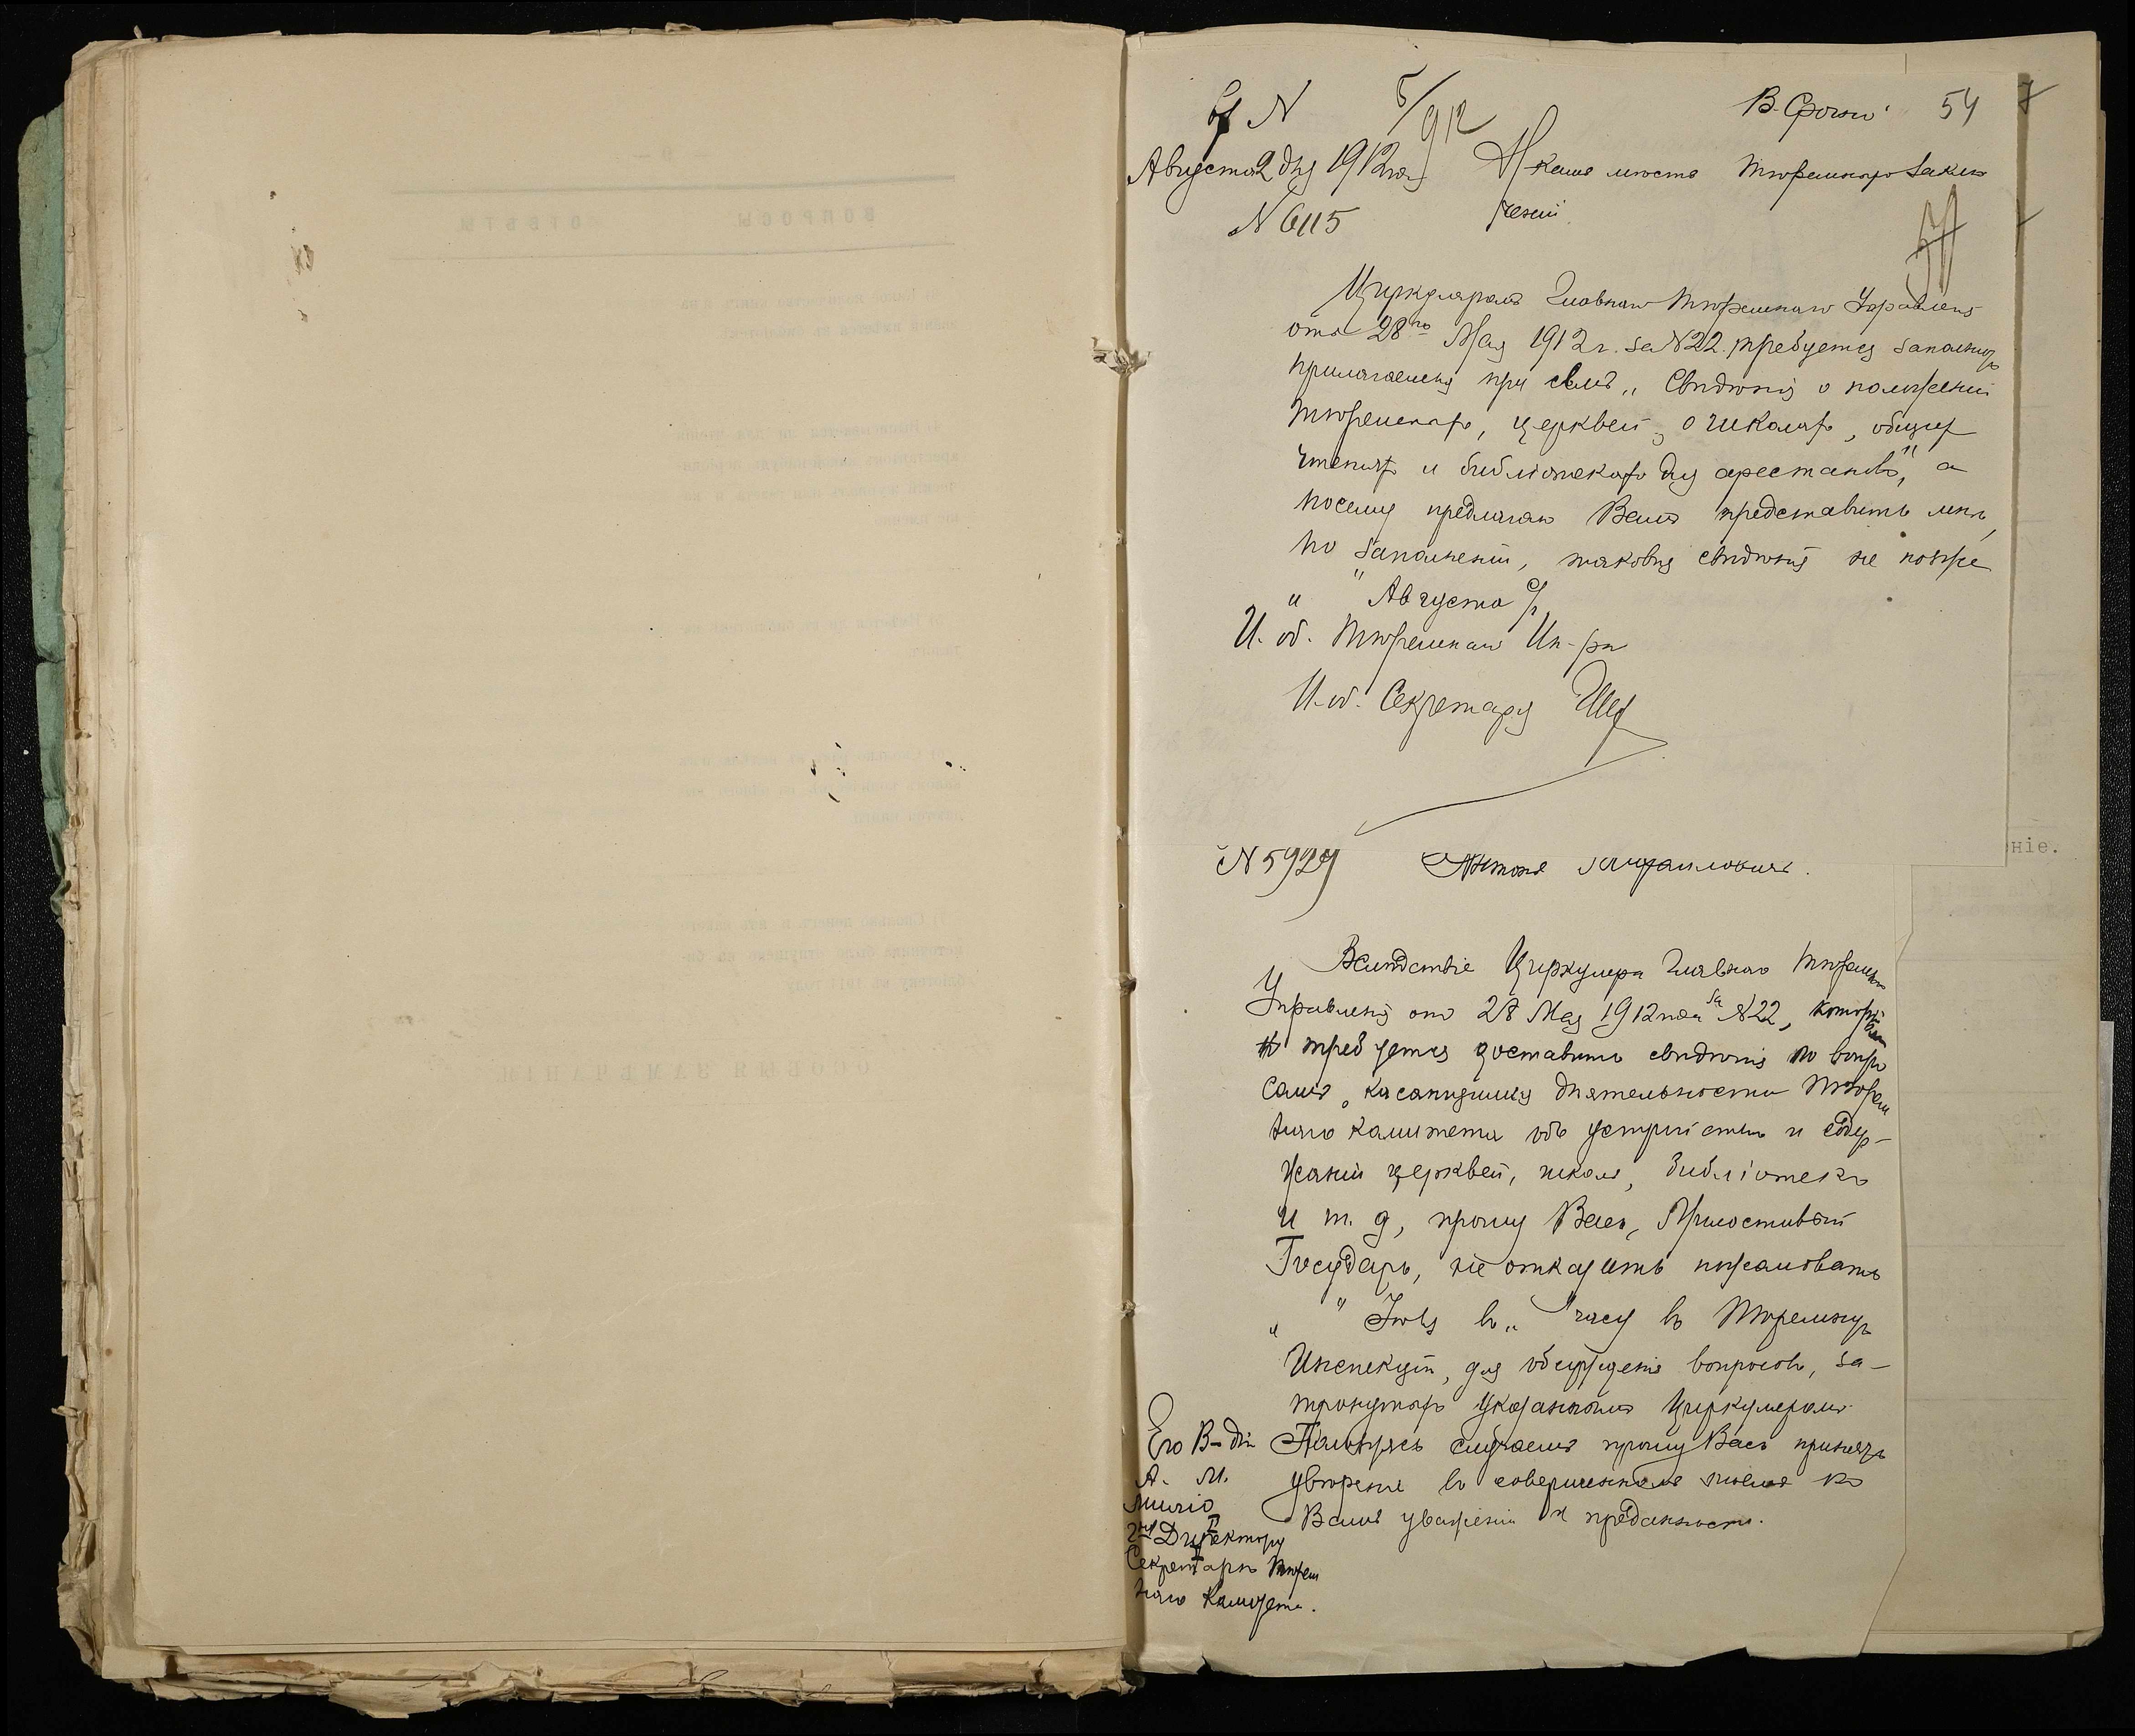 В. Срочно 54
5/912
Августа 2 дня 1912 года Н-камъ мѣстъ Тюремнаго Заклю
N 6115 ченія
Циркуляромъ Главнаго Тюремнаго Управленія
отъ 28го Мая 1912 г. за N22. требуется заполнить
прилагаемыя при семъ „Свѣдѣнія о положеніи
тюремныхъ церквей, о школахъ, общихъ
чтеніяхъ и библіотекахъ для арестантовъ", а
посему предлагаю Вамъ представить мнѣ,
по заполненіи, таковыя свѣдѣнія не позже
„ " Августа с/г.
И. об. Тюремнаго Ин-ра
И. об. Секретаря
N 5929 Антонъ
Вслѣдствіе Циркуляра Главнаго Тюремнаго
Управленія отъ 28 Мая 1912 года за N22, которымъ
требуется доставить свѣдѣнія по вопро
самъ, касающимся дѣятельности Тюрем
наго Комитета объ устройствѣ и содер-
жаніи церквей, школъ, библіотекъ
и т. д, прошу Васъ, Милостивый
Государь, не отказать пожаловать
„ " Іюля въ „ " часу въ Тюремную
Инспекцію, для обсужденія вопросовъ, за-
тронутыхъ указаннымъ Циркуляромъ.
Его В-дію Пользуясь случаемъ прошу Васъ принять
А. М. увѣреніе въ совершенномъ моемъ къ
Вамъ уваженіи и преданности.
Директору
Секретарю Тюрем
наго Комитета.
ніе.
ВОПРОСЫ ОТВѢТЫ
ОСОБЫЯ ЗАМѢЧАНІЯ